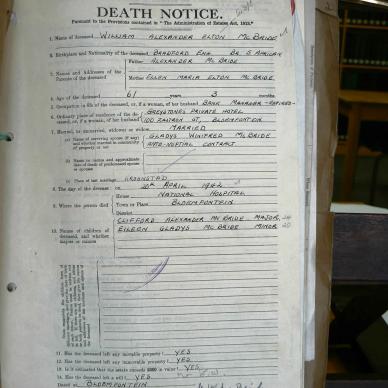 DEATH NOTICE.
Pursuant to the Provisions contained in "The Administration of Estates Act, 1913."
1. Name of deceased WILLIAM ALEXANDER ELTON McBRIDE
2. Birthplace and Nationality of the deceased BRADFORD ENG. BR. S AFRICAN
3. Names and Addresses of the Parents of the deceased
Father ALEXANDER McBRIDE
Mother ELLEN MARIA ELTON McBRIDE
4. Age of the deceased 61 years 3 months
5. Occupation in life of the deceased, or, if a woman, of her husband BANK MANAGER-RETIRED
6. Ordinary place of residence of the deceased, or, if a woman, of her husband GREYSTONES PRIVATE HOTEL
100 ZASTRON ST, BLOEMFONTEIN
7. Married, or unmarried, widower or widow MARRIED
(a) Name of surviving spouse (if any) and whether married in community of property or not GLADYS WINIFRED McBRIDE
ANTE-NUPTIAL CONTRACT
(b) Name or names and approximate date of death of predeceased spouse or spouses
(c) Place of last marriage KROONSTAD
8. The day of the decease on APRIL 1942
9. Where the person died
House NATIONAL HOSPITAL
Town or Place BLOEMFONTEIN
District
10. Names of children of deceased, and whether majors or minors
CLIFFORD ALEXANDER McBRIDE MAJOR
EILEEN GLADYS McBRIDE MINOR 20
11. Has the deceased left any movable property? YES
12. Has the deceased left any immovable property? YES
13. Is it estimated that the estate exceeds £300 in value? YES
14. Has the deceased left a will? YES
Dated at BLOEMFONTEIN